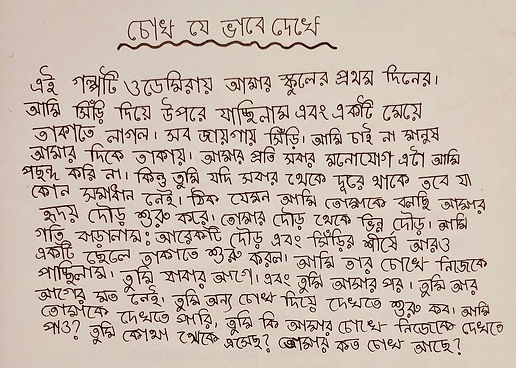 চোখ যে ভাবে দেখে
এই গল্পটি ওডেমিরায় আমার স্কুলের প্রথম দিনের।
আমি সিঁড়ি দিয়ে উপরে যাচ্ছিলাম এবং একটি মেয়ে
তাকাতে লাগল। সব জায়গায় সিঁড়ি। আমি চাই না মানুষ
আমার দিকে তাকায়। আমার প্রতি সবার মনোযোগ এটা আমি
পছন্দ করি না। কিন্তু তুমি যদি সবার থেকে দূরে থাকে তবে যা
কোন সমাধান নেই। ঠিক যেমন আমি তোমাকে বলছি আমার
হৃদয় দৌড় শুরু করে। তোমার দৌড় থেকে ভিন্ন দৌড়। আমি
গতি বাড়ালাম: আরেকটি দৌড় এবং সিঁড়ির শীর্ষে আরও
একটি ছেলে তাকাতে শুরু করল। আমি তার চোখে নিজেকে
পাচ্ছিলাম। তুমি যাবার আগে। এবং তুমি আমার পর। তুমি আর
আগের মত নেই। তুমি অন্য চোখ দিয়ে দেখতে শুরু কর। আমি
তোমাকে দেখতে পারি, তুমি কি আমার চোখে নিজেকে দেখতে
পাও? তুমি কোথা থেকে এসেছ? তোমার কত চোখ আছে?